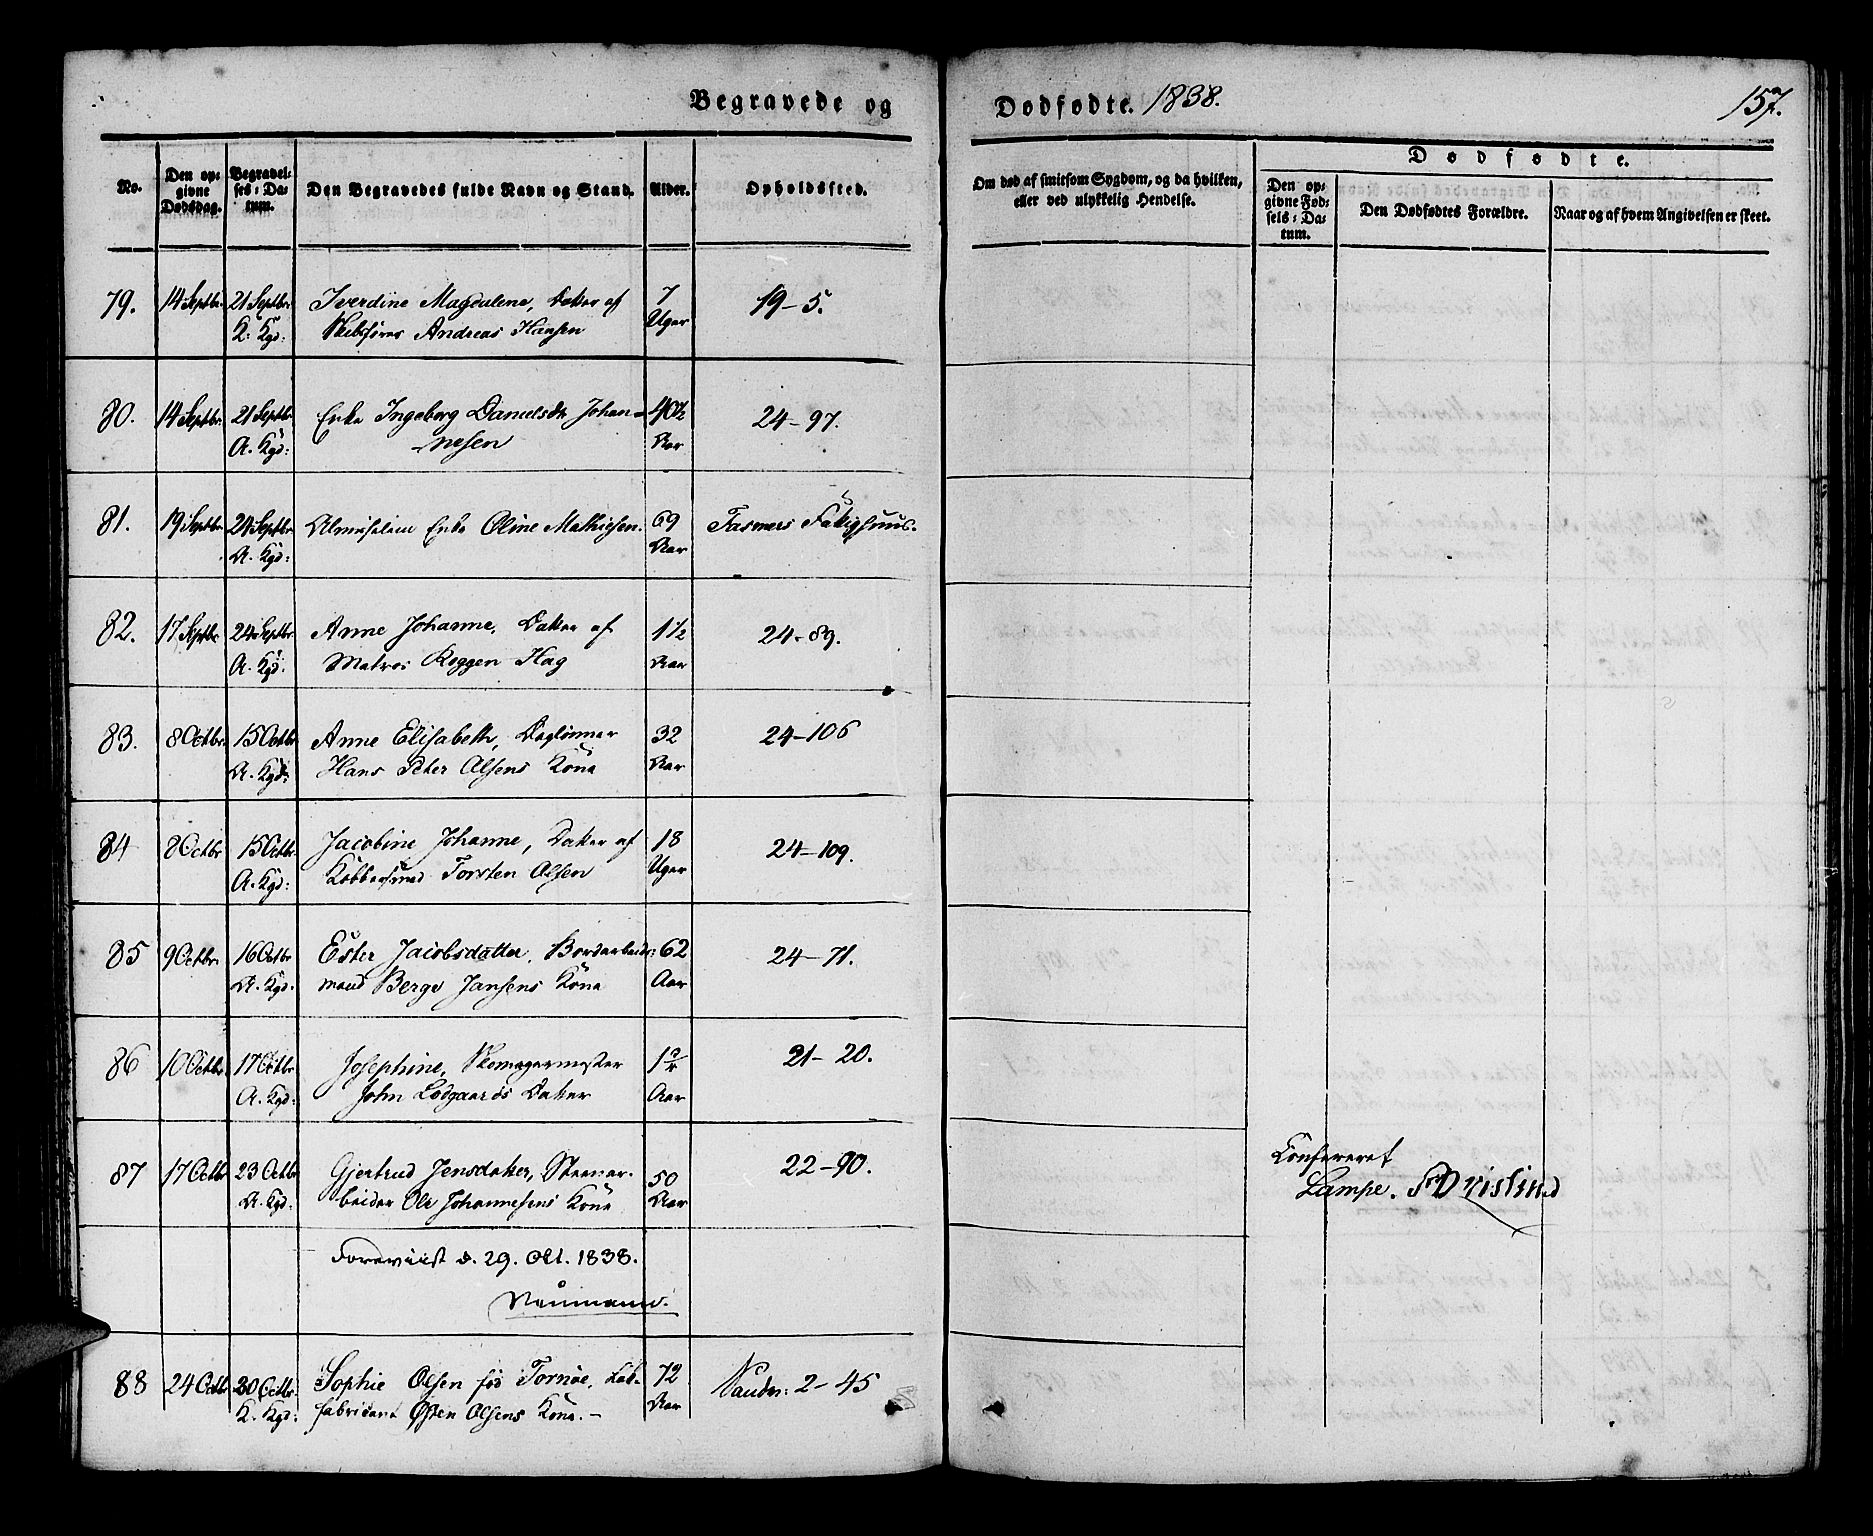 Begravede og Dødfødte. 1838. 157.
No.
Den op-
givne
Dødsdag.
Begravel-
ses-Da-
tum.
Den Begravedes fulde Navn og Stand.
Alder.
Opholdssted.
Om død af smitsom Sygdom, og da hvilken,
eller ved ulykkelig Hendelse.
Dødfødte.
Den op-
givne Fød-
sels-Da-
tum.
Den Dødfødtes Forældre.
Naar og af hvem Angivelsen er skeet.
79. 14 Septbr. 21 Septbr. Iverdine Magdalene, Datter af 7 19-5.
K. Kgd: Skibsfører Andreas Hansen Uger
80. 14 Septbr. 21 Septbr Enke Ingeborg Danielsdtr Johan- 40½ 24-97.
A. Kgd: nesen Aar
81. 19 Septbr 24 Septbr Almislem Enke Oline Mathiesen. 69 Fasmers Fattighuus.
A. Kgd: Aar
82. 17 Septbr 24 Septbr Anne Johanne, Datter af 1½ 24-89.
A. Kgd: Matros Roggen Hag Aar
83. 8 Octbr. 15 Octbr Anne Elisabeth, Daglønner 32 24-106
A. Kgd: Hans Peter Olsens Kone Aar
84 8 Octbr 15 Octbr. Jacobine Johanne, Datter af 18 24-109.
A. Kgd: Kobbersmed Torsten Olsen Uger
85 9 Octbr. 16 Octbr Ester Jacobsdatter, Bordarbeids- 62 24-71.
A. Kgd. mand Berge Jansens Kone Aar
86 10 Octbr. 17 Octbr. Josephine, Skomagermester 1 21-20.
A. Kgd: John Lodgaards Datter Aar
87 17 Octbr 23 Octbr Gjertrud Jensdatter, Steenar- 50 22-90.
A. Kgd: beider Ole Johannesens Kone Aar
Confereret
Lampe. Fr Dvistind
Foreviist d. 29. Oct. 1838.
Neumann.
88 24 Octbr 30 Octbr. Sophie Olsen fød Tornøe, 72 2-45
K. Kgd: fabricant Østen Olsens Kone.- Aar